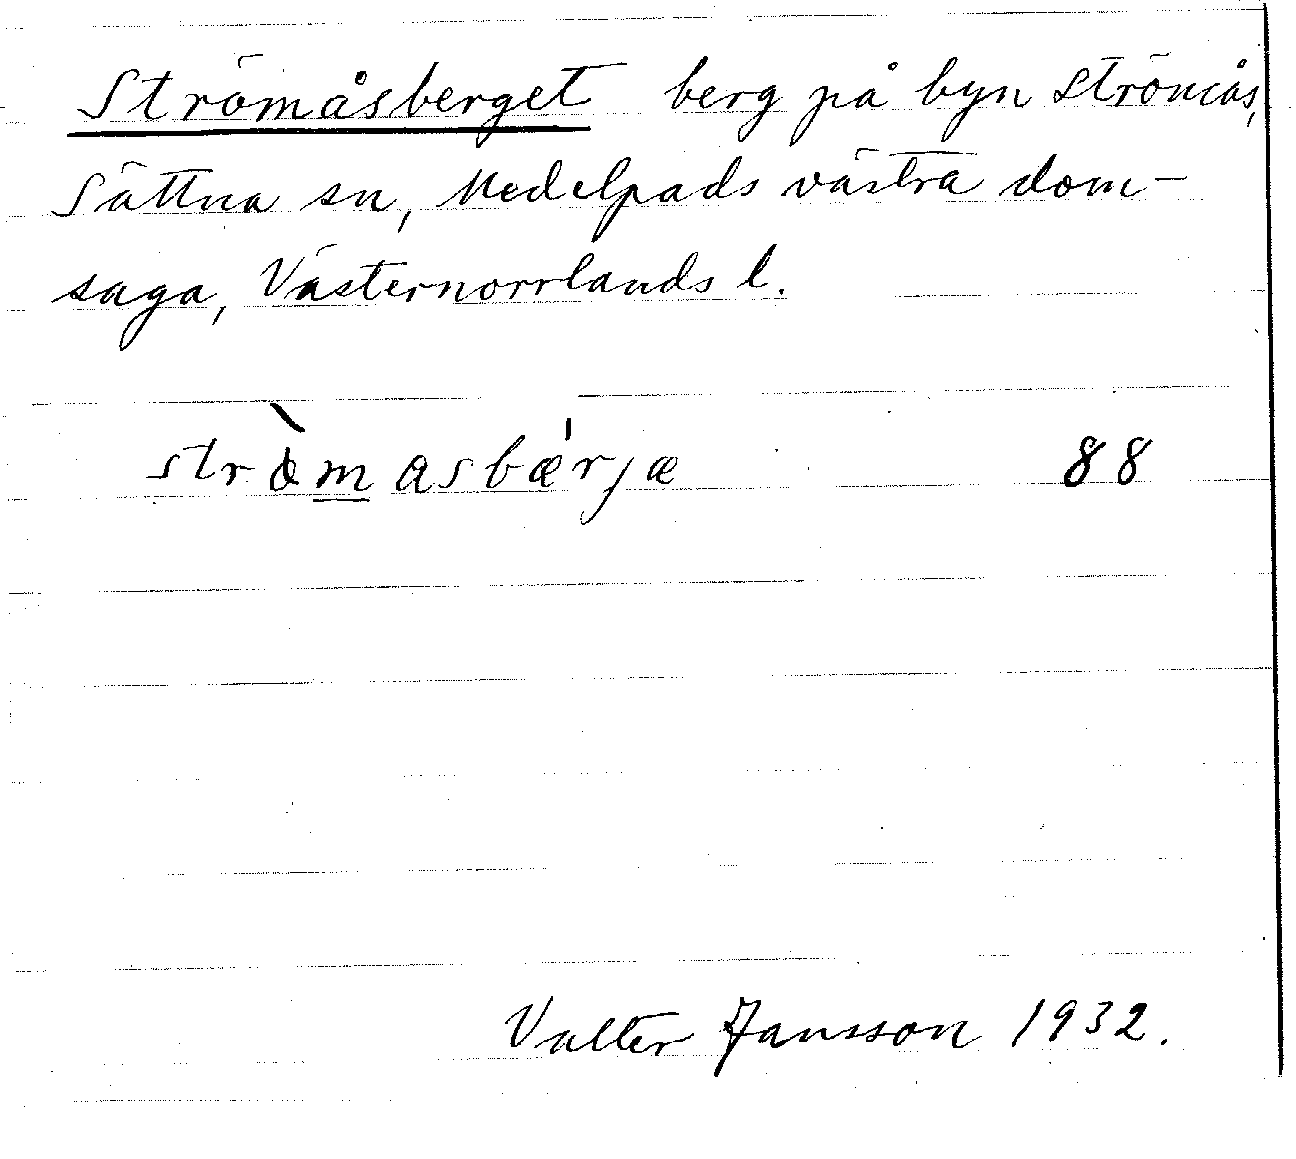 Strömåsberget berg på byn Strömås,
Sättna sn, Medelpads västra dom-
saga, Västernorrlands l.
stròmasbǽrjæ 88
Valter Jansson 1932.